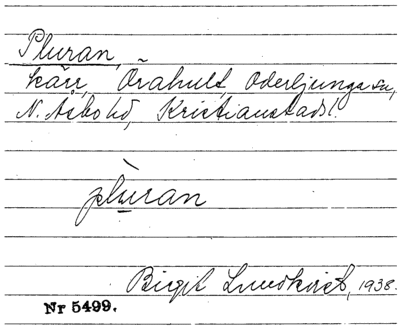 Pluran,
kärr, Örahult, Oderljunga sn,
N. Åsbo hd, Kristianstads l.
plùran
Birgit Lundkvist, 1938.
Nr 5499.